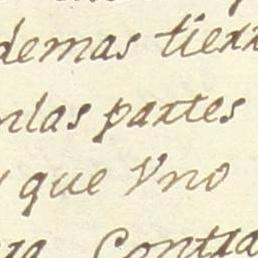 demas tierr
nlas partes
y que Vno
Contra